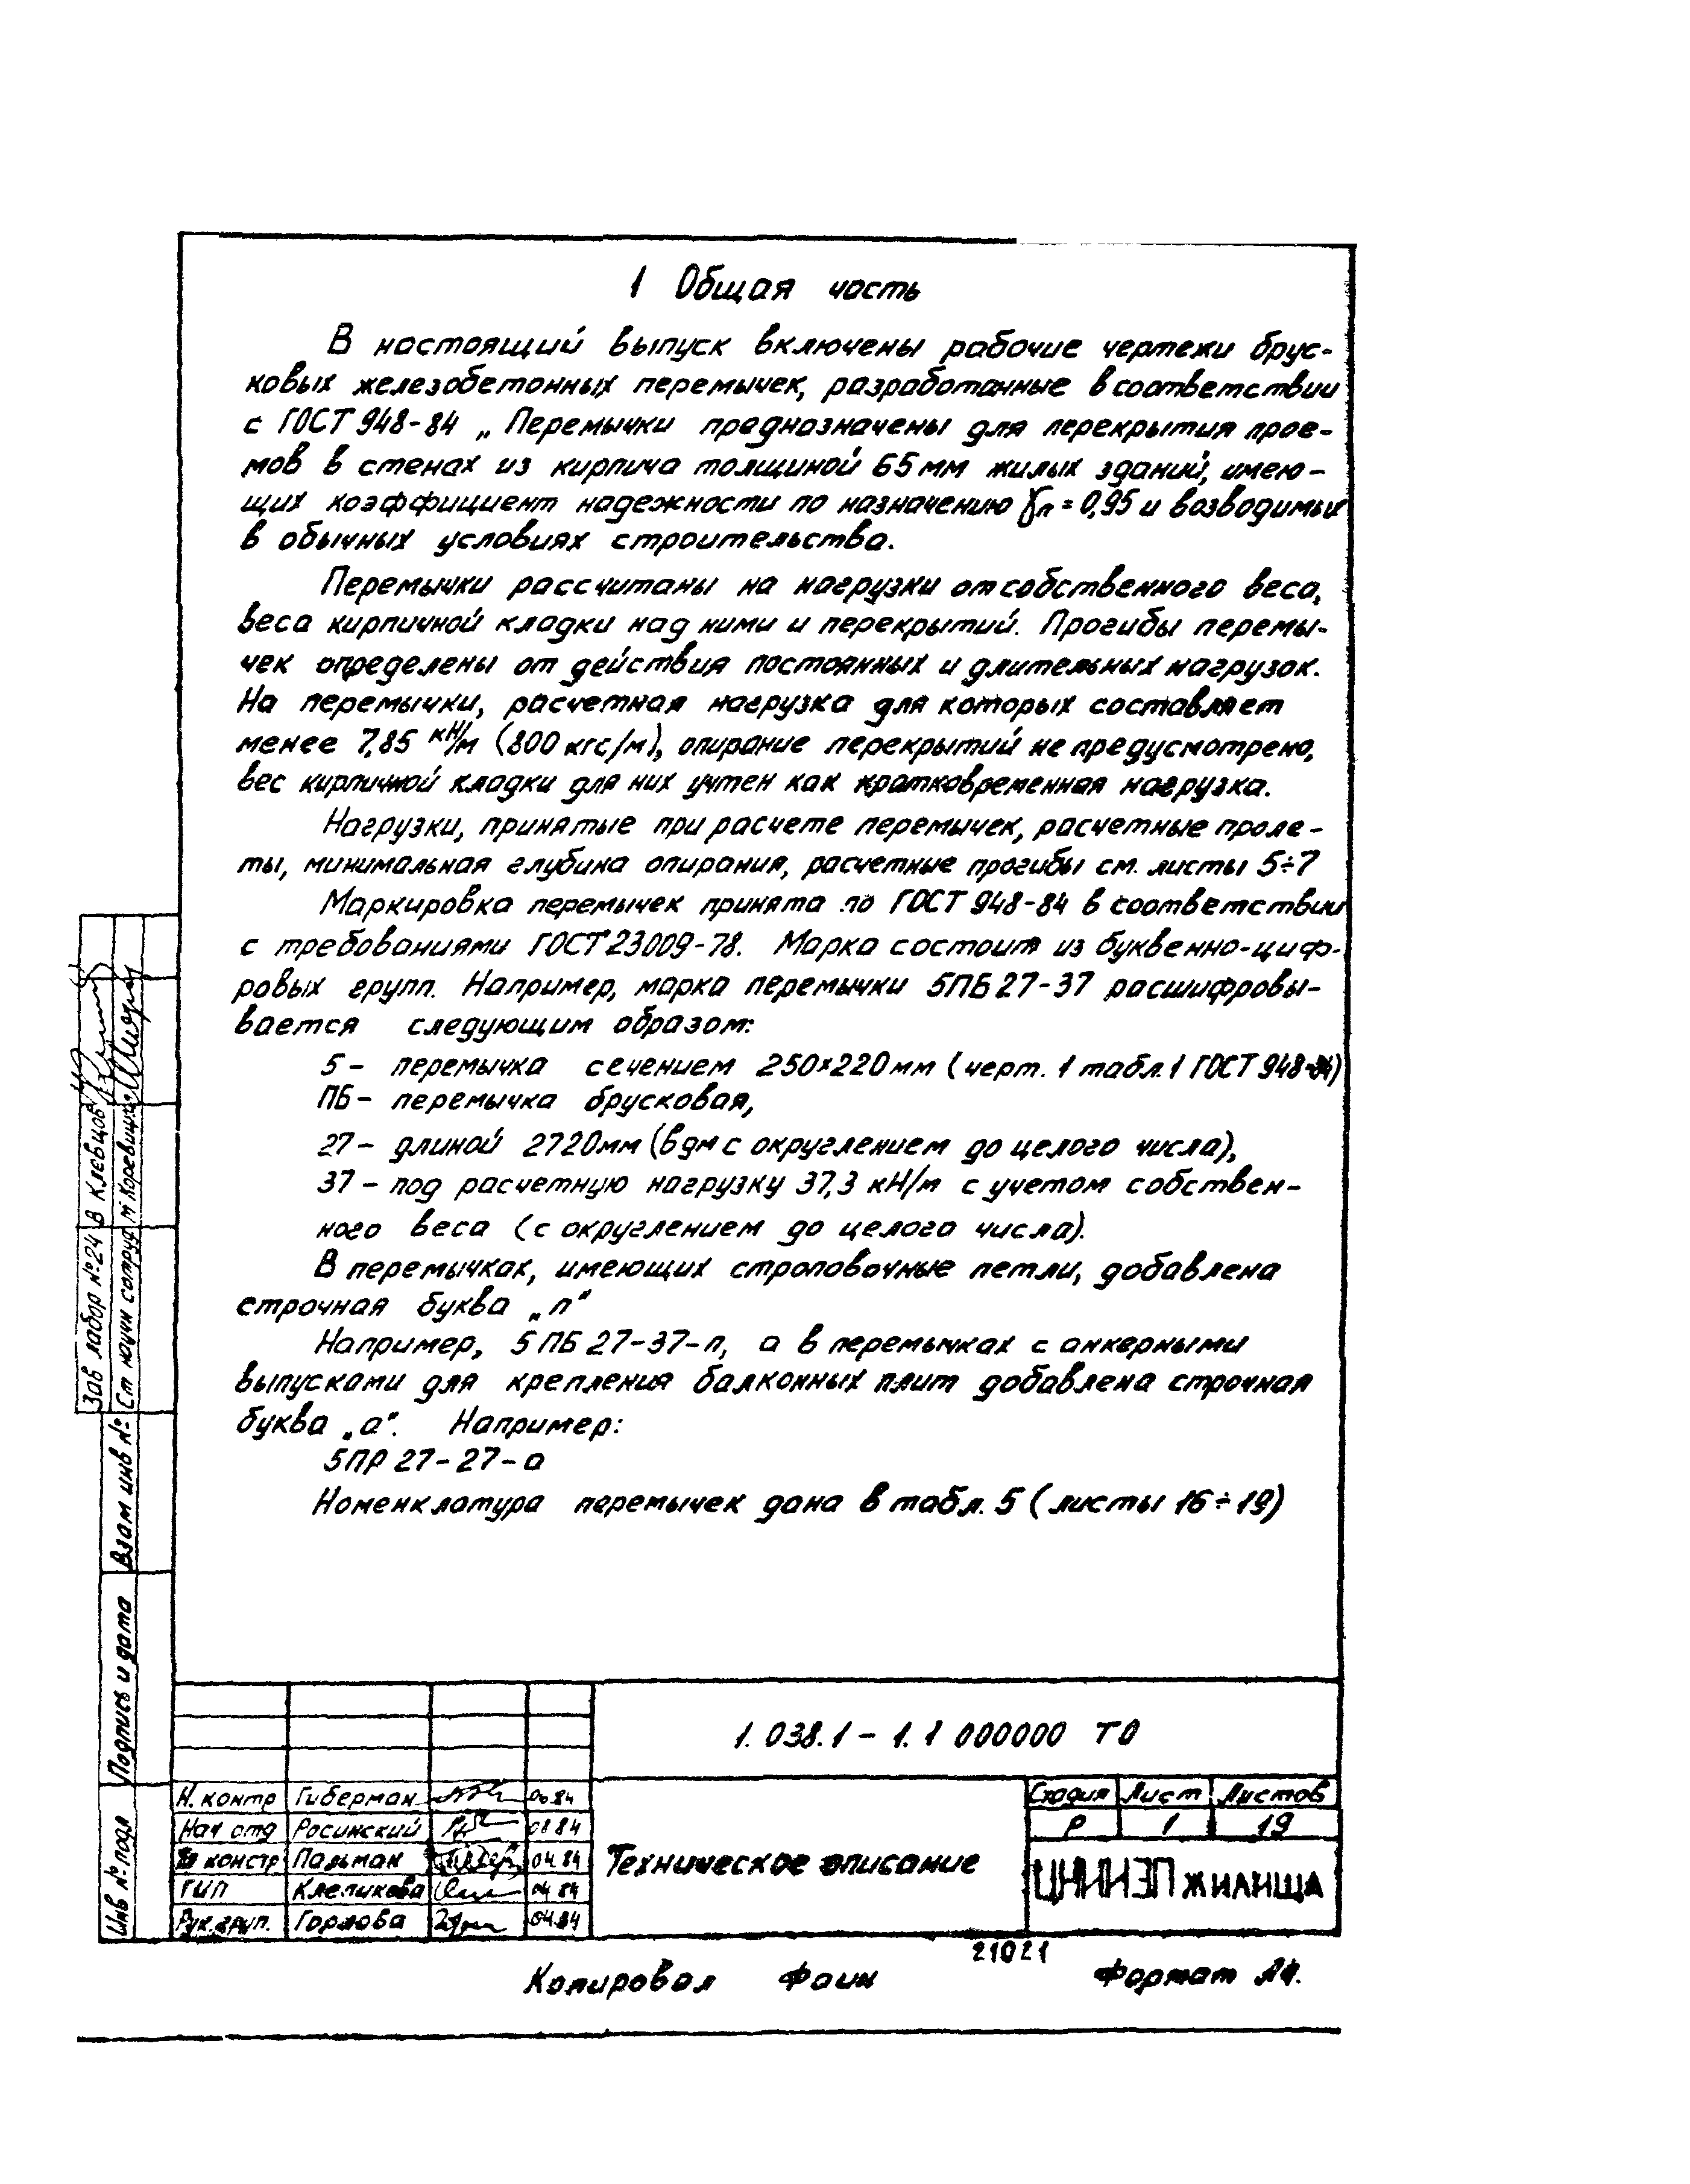 1 Общая часть
В настоящий выпуск включены рабочие чертежи брус-
ковых железобетонных перемычек, разработанные в соответствии
с ГОСТ 948-84 „ Перемычки предназначены для перекрытия прое-
мов в стенах из кирпича толщиной 65 мм жилых зданий, имею-
щих коэффициент надежности по назначению γп = 0,95 и возводимых
в обычных условиях строительства.
Перемычки рассчитаны на нагрузки от собственного веса,
веса кирпичной кладки над ними и перекрытий. Прогибы перемы-
чек определены от действия постоянных и длительных нагрузок.
На перемычки, расчетная нагрузка для которых составляет
менее 7,85 кН/м (800 кгс/м), опирание перекрытий не предусмотрено,
вес кирпичной кладки для них учтен как кратковременная нагрузка.
Нагрузки, принятые при расчете перемычек, расчетные проле-
ты, минимальная глубина опирания, расчетные прогибы см. листы 5÷7
Маркировка перемычек принята по ГОСТ 948-84 в соответствии
с требованиями ГОСТ 23009-78. Марка состоит из буквенно-циф-
ровых групп. Например, марка перемычки 5ПБ 27-37 расшифровы-
вается следующим образом:
5 - перемычка сечением 250×220 мм ( черт. 1 табл. 1 ГОСТ 948-84)
ПБ - перемычка брусковая,
27 - длиной 2720мм (в дм с округлением до целого числа),
37 - под расчетную нагрузку 37,3 кН/м с учетом собствен-
ного веса ( с округлением до целого числа).
В перемычках, имеющих строповочные петли, добавлена
строчная буква „п"
Например, 5 ПБ 27-37-п, а в перемычках с анкерными
выпусками для крепления балконных плит добавлена строчная
буква „а". Например:
5ПР 27-27-а
Номенклатура перемычек дана в табл. 5 ( листы 16÷19)
Зав лабор №24 В Клевцов
Ст научн сотруд М Коревицкая
Взам инв №
Подпись и дата
Инв № подл
1. 038.1 - 1. 1 000000 ТО
Н. контр Гиберман
Нач отд Росинский 08 84
констр Пальман 04 84
ГИП Клепикова 04 84
Рук. груп. Горлова 04.84
Техническое описание
Стадия Лист Листов
Р 1 19
ЦНИИЭП жилища
21021
Копировал Фаин Формат А4.